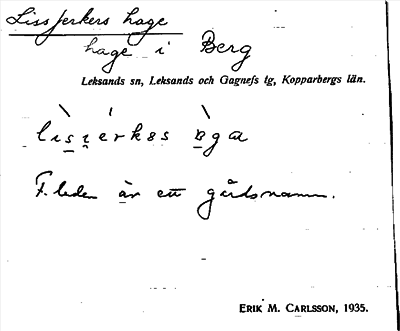 Lissjerkers hage
hage i Berg
Leksands sn, Leksands och Gagnefs tg, Kopparbergs län.
F. leden är ett gårdsnamn.
ERIK M. CARLSSON, 1935.